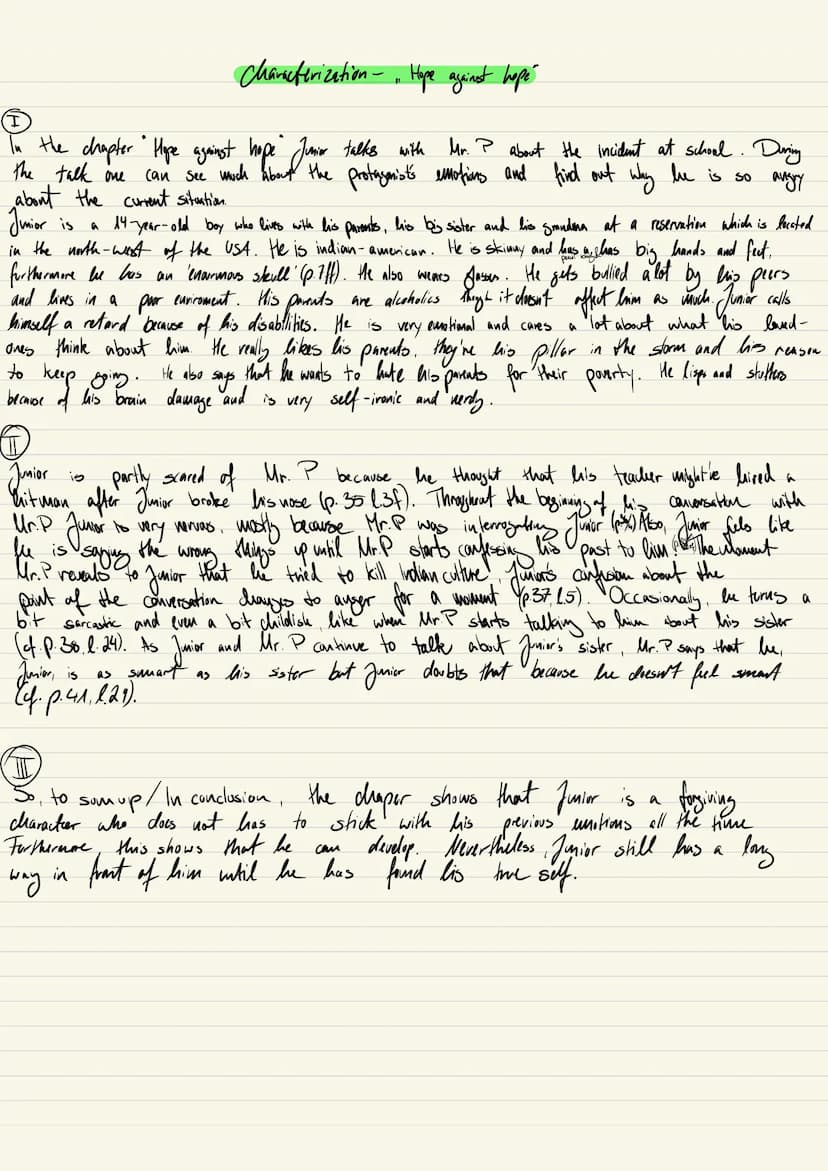 Characterization – „Hope against hope"
I
In the chapter "Hope against hope" Junior talks with Mr. P about the incident at school. During
the talk one can see much about the protagonist's emotions and find out why he is so angry
about the current situation.
Junior is a 14-year-old boy who lives with his parents, his big sister and his grandma at a reservation which is located
in the north-west of the USA. He is indian-american. He is skinny and has big hands and feet,
furthermore he has an 'enormous skull' (p.7ff). He also wears glasses. He gets bullied alot by his peers
and lives in a poor enviroment. His parents are alcoholics though it doesn't affect him as much. Junior calls
himself a retard because of his disabilities. He is very emotional and cares a lot about what his loved-
ones think about him. He really likes his parents, they're his pillar in the storm and his reason
to keep going. He also says that he wants to hate his parents for their poverty. He lisps and stutters
because of his brain damage and is very self-ironic and nerdy.
II
Junior is partly scared of Mr. P because he thought that his teacher might've hired a
hitman after Junior broke his nose (p.35 l.3f). Throughout the beginning of his conversation with
Mr.P Junior is very nervous, mostly because Mr.P was interrogating Junior Also, Junior feels like
he is saying the wrong things up until Mr.P starts confessing his past to him The moment
Mr.P reveals to Junior that he tried to kill Indian culture, Junior's confusion about the
point of the conversation changes to anger for a moment (p.37, l.5). Occasionally, he turns a
bit sarcastic and even a bit childish, like when Mr.P starts talking to him about his sister
(cf. p.38, l.24). As Junior and Mr. P continue to talk about Junior's sister, Mr.P says that he,
Junior, is as smart as his sister but Junior doubts that because he doesn't feel smart
(cf. p.41, l.29).
III
So, to sum up/In conclusion, the chaper shows that Junior is a forgiving
character who does not has to stick with his previous emotions all the time
Furthermore, this shows that he can develop. Nevertheless, Junior still has a long
way in front of him until he has found his true self.